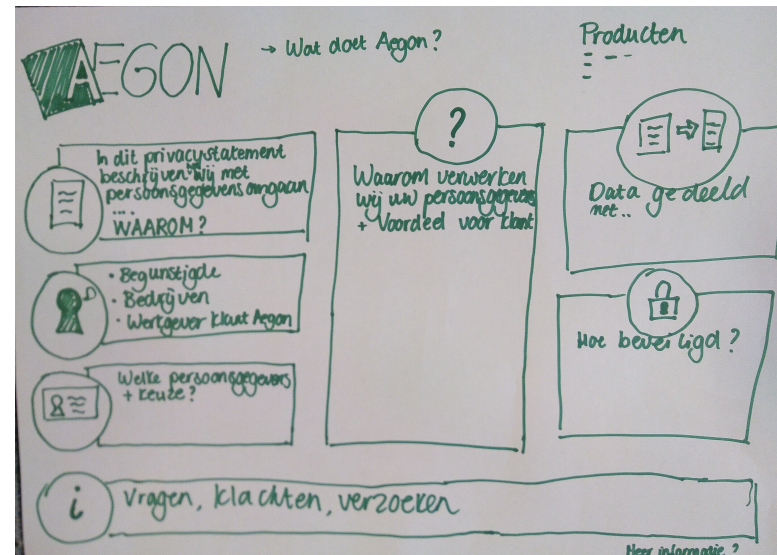 AEGON
→ Wat doet Aegon?
Producten
In dit privacystatement
beschrijven wij met
persoonsgegevens omgaan
...
WAAROM?
• Begunstigde
• Bedrijven
• Wertgever klant Aegon
Welke persoonsgegevens
+ keuze?
?
Waarom verwerken
wij uw persoonsgegevens
+ Voordeel voor klant
Data gedeeld
met..
Hoe beveiligd?
i
Vragen, klachten, verzoeken
Meer informatie?